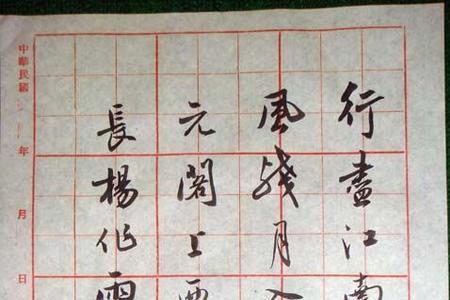 行盡江南
風殘月入
元閣上西
長楊作雨
中華民國 年 月 日